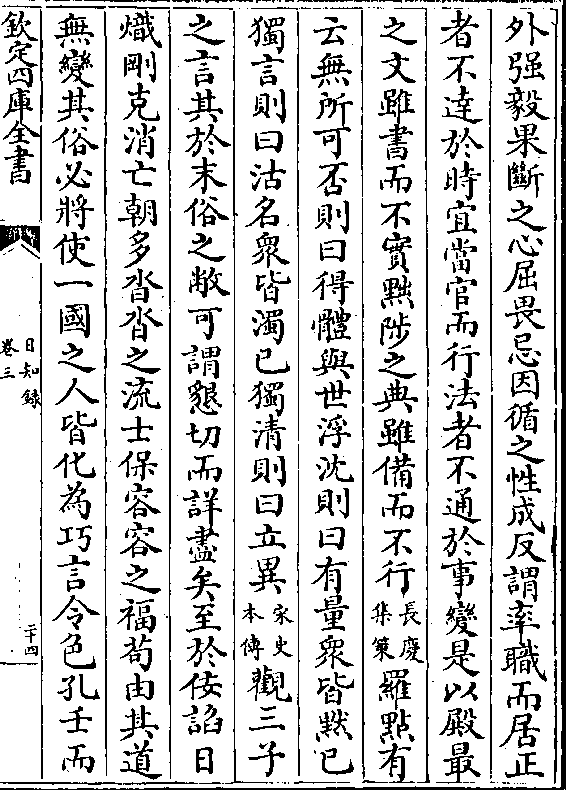 外强毅果斷之心屈畏忌因循之性成反謂率職而居正
者不達於時宜當官而行法者不通於事變是以殿最
之文雖書而不實黜陟之典雖備而不行長慶集策羅點有
云無所可否則曰得體與世浮沈則曰有量衆皆黙已
獨言則曰沽名衆皆濁已獨清則曰立異宋史本傳觀三子
之言其於末俗之敝可謂懇切而詳盡矣至於佞諂日
熾剛克消亡朝多沓沓之流士保容容之福苟由其道
無變其俗必將使一國之人皆化為巧言令色孔壬而
欽定四庫全書
日知錄
卷三
二十四